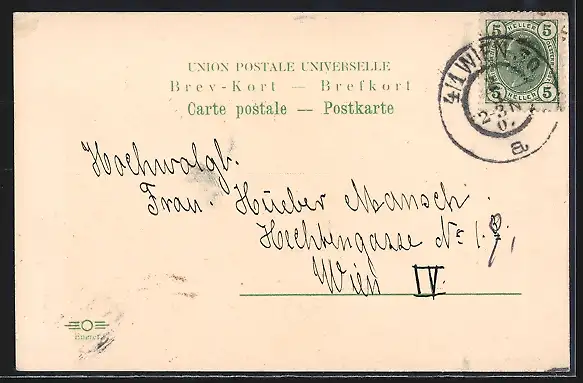 UNION POSTALE UNIVERSELLE
Brev-Kort — Brefkort
Carte postale — Postkarte
5 HELLER 5
5 HELLER 5
4/1 WIEN 70
2-3N
a
Hochwolgb.
Frau. Hueber Mansch.
Hechtengasse No 1.
Wien IV.